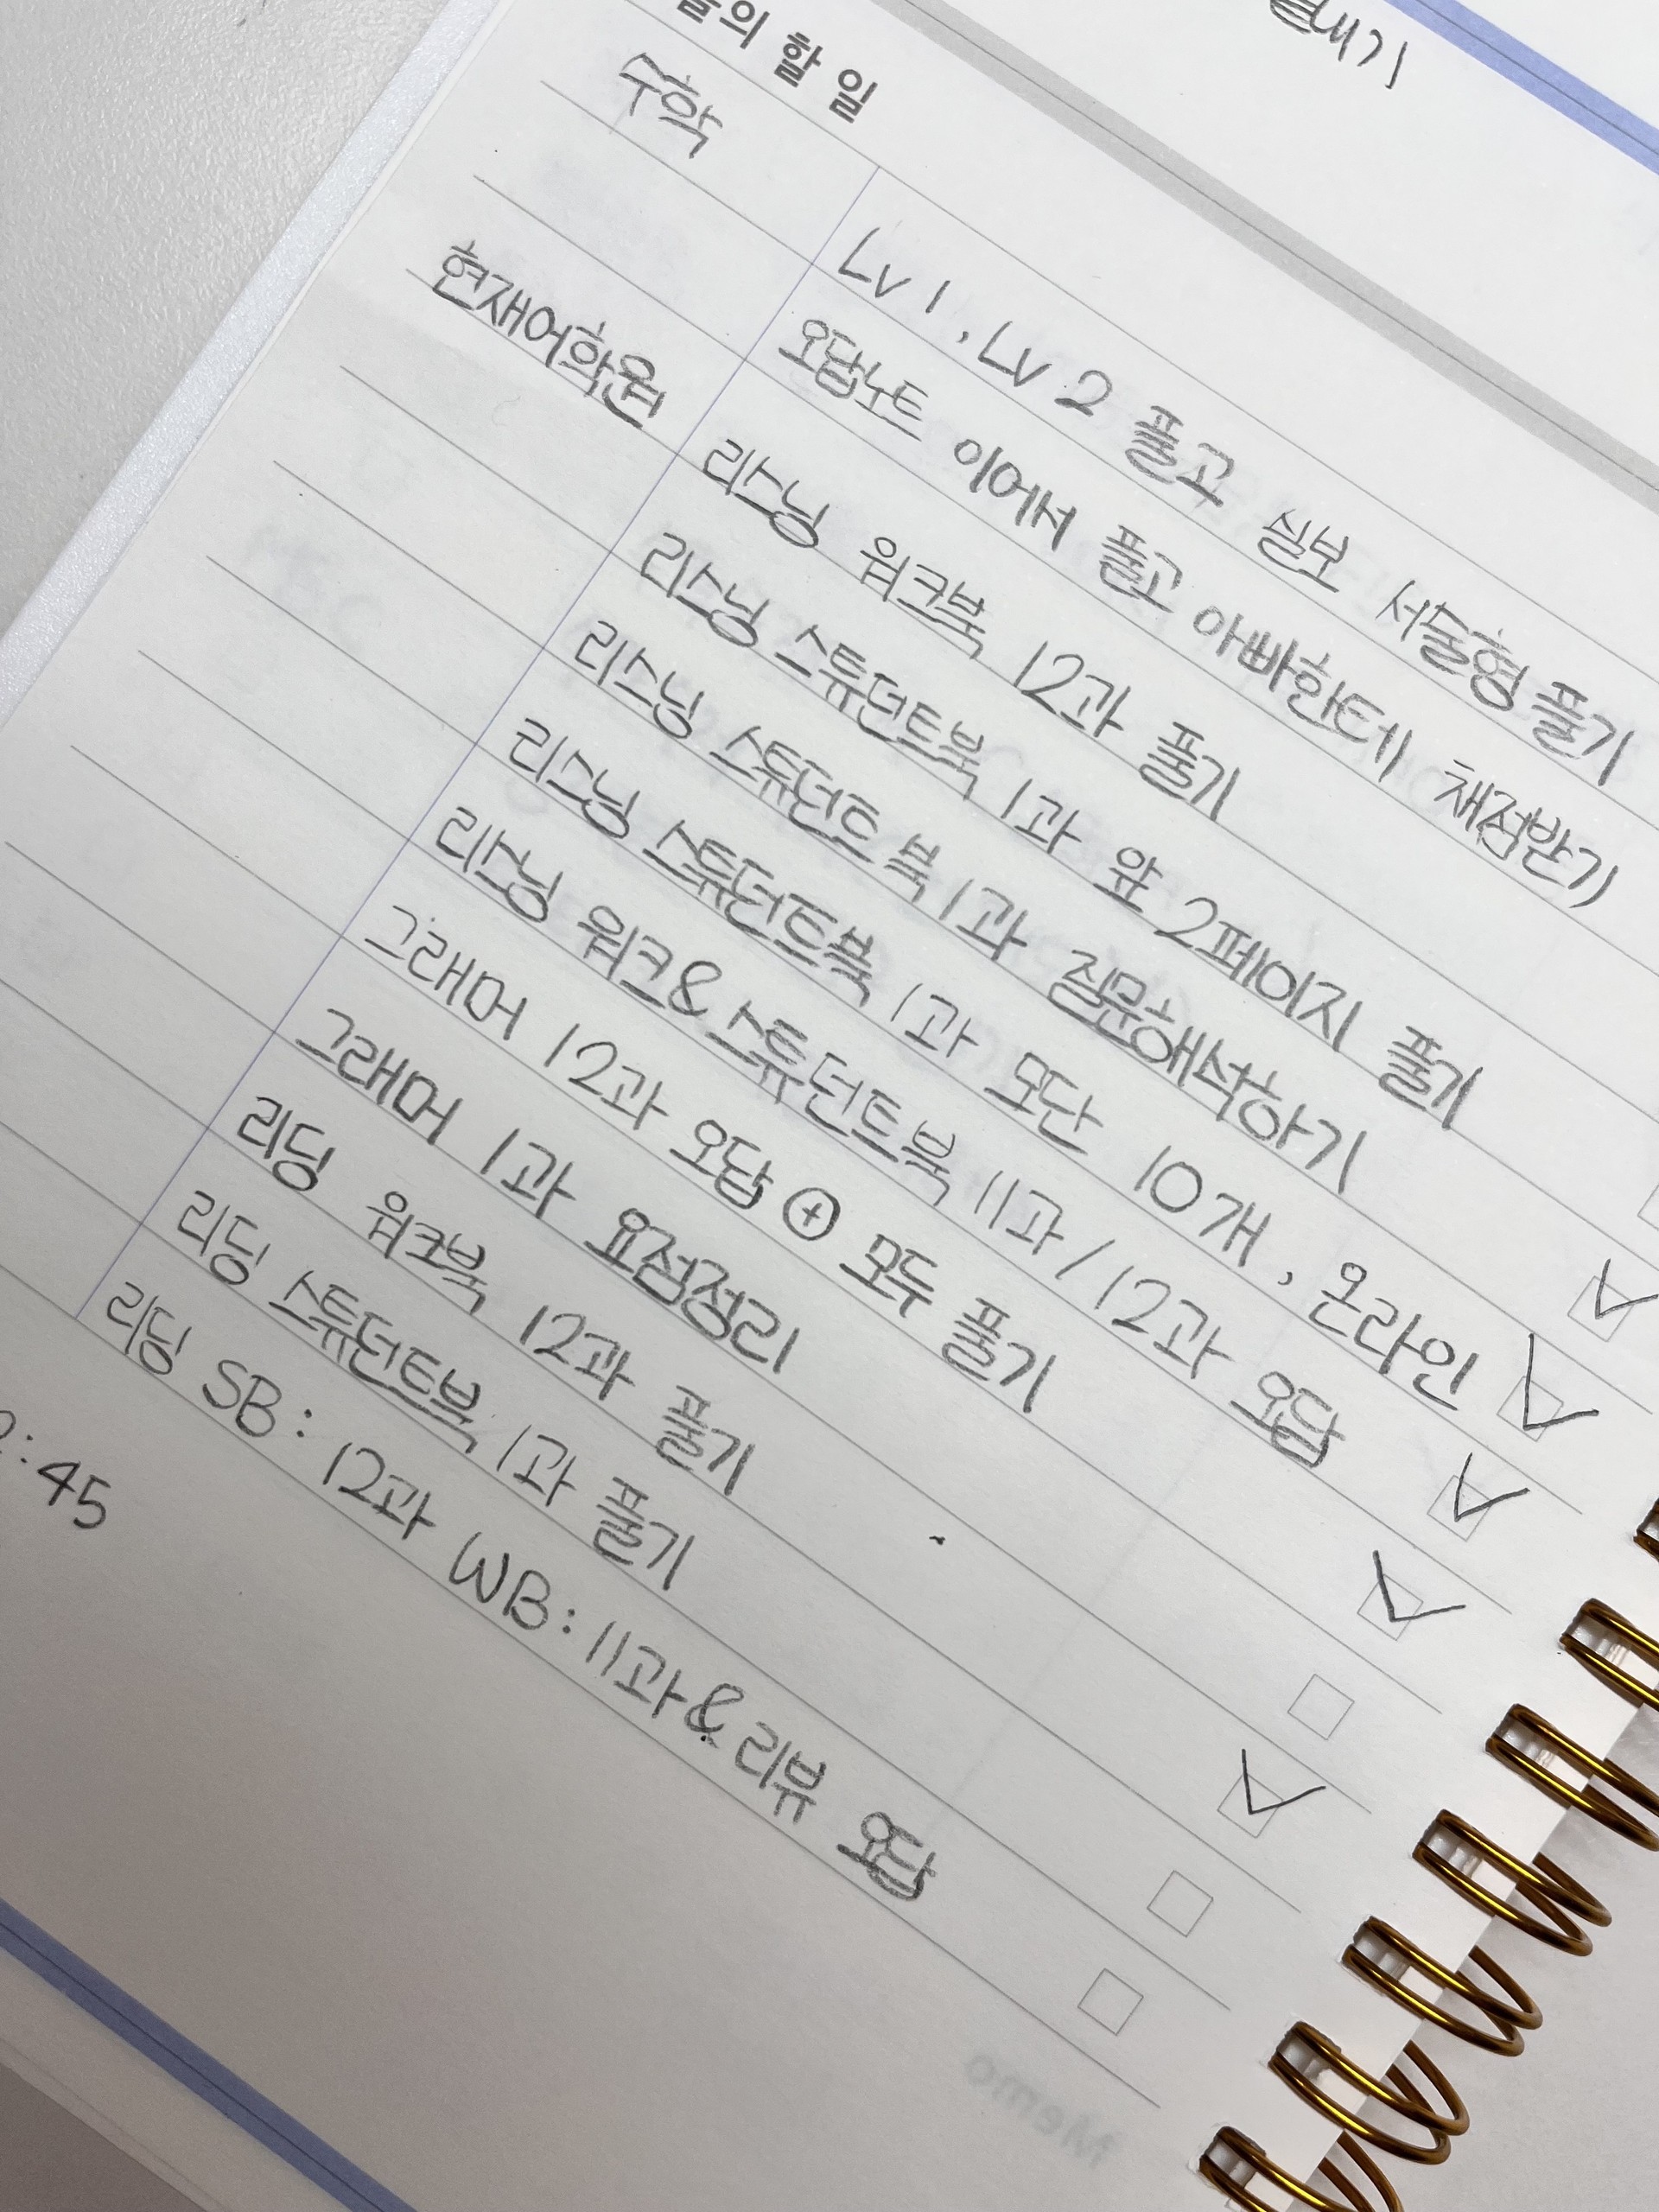 의 할 일
수학
Lv 1, Lv 2 풀고 실보 서술형 풀기
오답노트 이어서 풀고 아빠한테 채점받기
현재어학원
리스닝 워크북 12과 풀기
리스닝 스튜던트북 1과 앞 2페이지 풀기
리스닝 스튜던트 북 1과 질문해석하기
리스닝 스튜던트북 1과 모단 10개, 온라인
리스닝 워크&스튜던트북 11과/12과 오답
그래머 12과 오답 ⊕ 모두 풀기
그래머 1과 요점정리
리딩 워크북 12과 풀기
리딩 스튜던트북 1과 풀기
리딩 SB: 12과 WB: 11과&리뷰 오답
:45
Memo